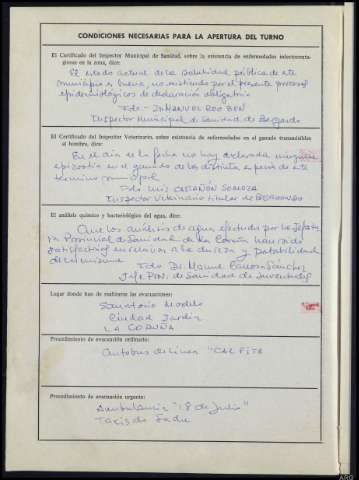 CONDICIONES NECESARIAS PARA LA APERTURA DEL TURNO
El Certificado del Inspector Municipal de Sanidad, sobre la existencia de enfermedades infectocontagiosas en la zona, dice:
El estado actual de la sanidad pública de este
municipio es bueno, no existiendo por el presente procesos
epidemiológicos de declaración obligatoria
Fdo - 
Inspector Municipal de Sanidad de Bergondo
El Certificado del Inspector Veterinario, sobre existencia de enfermedades en el ganado transmisibles
al hombre, dice:
En el día de la fecha no hay declarada ninguna
epizootia en el ganado de las distintas especies de este
término municipal
Fdo Luis CASTAÑÓN
Inspector Veterinario titular de BERGONDO
El análisis químico y bacteriológico del agua, dice:
Que los análisis de agua efectuado por la Jefatu
ra Provincial de Sanidad de La Coruña han sido
satisfactorios en cuanto a la dureza y potabilidad
de la misma
Fdo Dr. Manuel Sánchez
de Sanidad de Juventudes
Lugar donde han de realizarse las evacuaciones:
Sanatorio Modelo
Ciudad Jardín
LA CORUÑA
Procedimiento de evacuación ordinario:
Autobus de Linea "CAL PITA"
Procedimiento de evacuación urgente:
Ambulancia "18 de Julio"
Taxis de Sada